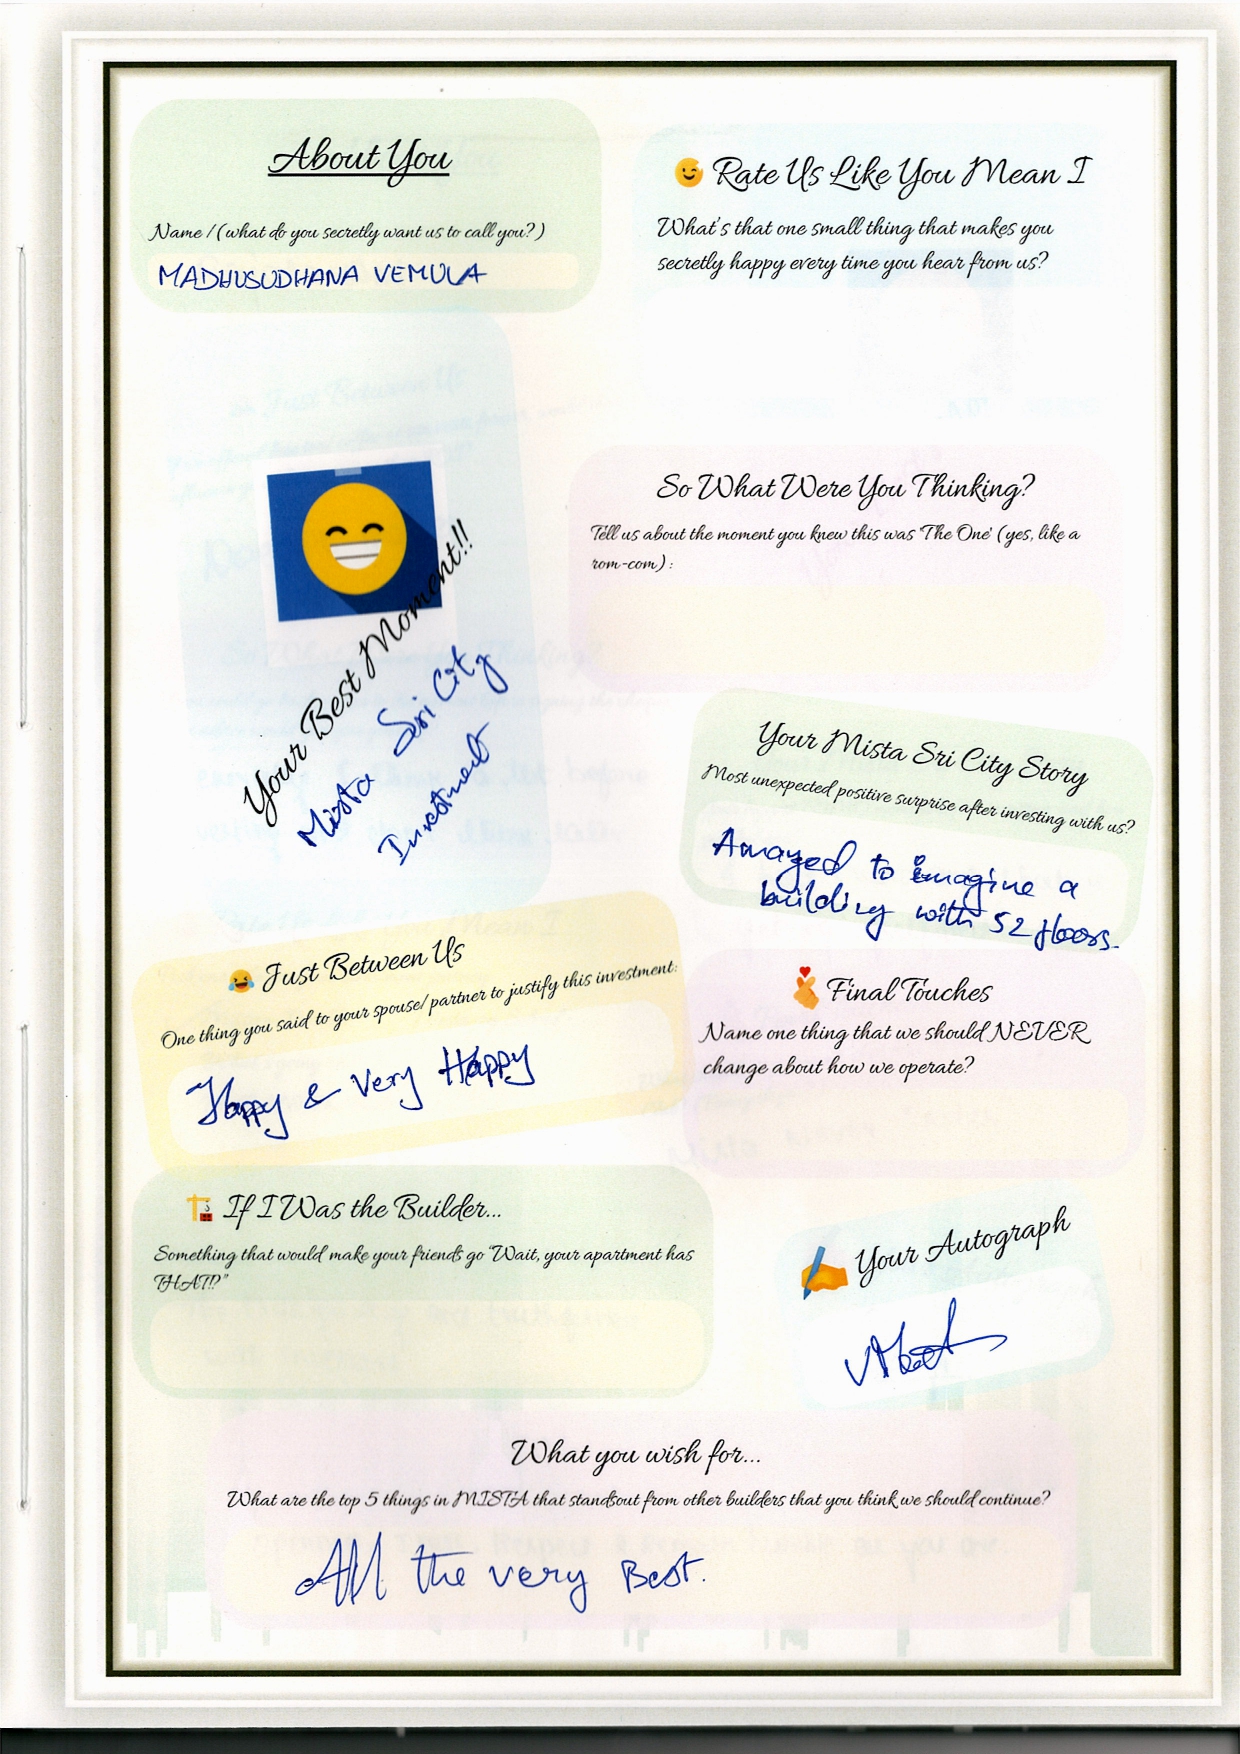 About You
Name / (what do you secretly want us to call you?)
MADHUSUDHANA VEMULA
Rate Us Like You Mean I
What's that one small thing that makes you
secretly happy every time you hear from us?
Your Best Moment!!
Mista Sri City
Investment
So What Were You Thinking?
Tell us about the moment you knew this was 'The One' (yes, like a
rom-com) :
Your Mista Sri City Story
Most unexpected positive surprise after investing with us?
Amazed to imagine a
building with 52 floors.
Just Between Us
One thing you said to your spouse/partner to justify this investment:
Happy & Very Happy
Final Touches
Name one thing that we should NEVER
change about how we operate?
If I Was the Builder...
Something that would make your friends go "Wait, your apartment has
THAT!?"
Your Autograph
What you wish for...
What are the top 5 things in MISTA that standsout from other builders that you think we should continue?
All the very Best.